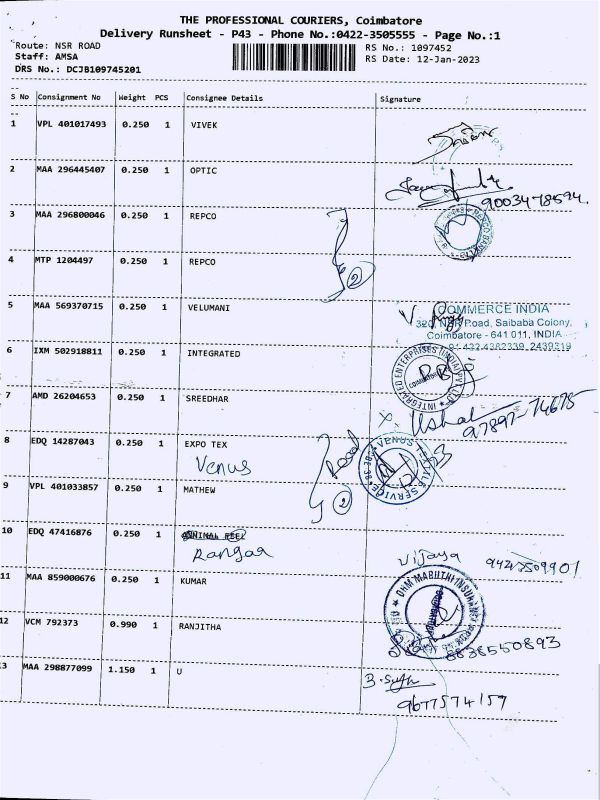 THE PROFESSIONAL COURIERS, Coimbatore
Delivery Runsheet - P43 - Phone No.:0422-3505555 - Page No.:1
Route: NSR ROAD
RS No.: 1097452
Staff: AMSA
RS Date: 12-Jan-2023
DRS No.: DCJB109745201
S No Consignment No Weight PCS Consignee Details Signature
1 VPL 401017493 0.250 1 VIVEK
2 MAA 296445407 0.250 1 OPTIC
9003478594
3 MAA 296800046 0.250 1 REPCO
4 MTP 1204497 0.250 1 REPCO
2
5 MAA 569370715 0.250 1 VELUMANI
COMMERCE INDIA
320, NSR Road, Saibaba Colony,
Coimbatore - 641 011, INDIA
6 IXM 502918811 0.250 1 INTEGRATED
INTEGRATED ENTERPRISES (INDIA)
7 AMD 26204653 0.250 1 SREEDHAR
Usha
97897-74675
8 EDQ 14287043 0.250 1 EXPO TEX
Venus
VENUS
9 VPL 401033857 0.250 1 MATHEW
2
10 EDQ 47416876 0.250 1
Rangaa
Vijaya
11 MAA 859000676 0.250 1 KUMAR
12 VCM 792373 0.990 1 RANJITHA
8838550893
13 MAA 298877099 1.150 1 U
9677574159